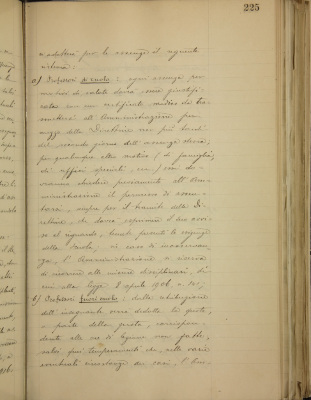 225
si adotterà per le assenze il seguente
criterio:
a) Professori di ruolo: ogni assenza per
motivo di salute dovrà venir giustifi-
cata con un certificato medico da tra-
smettersi all'Amministrazione per
mezzo della Direttrice non più tardi
del secondo giorno dell'assenza stessa;
per qualunque altro motivo (di famiglia,
di affari speciali, ecc.) essi do-
vranno chiedere previamente all'Am-
ministrazione il permesso di assen-
tarsi, sempre per il tramite della Di-
rettrice, che dovrà esprimere il suo avvi-
so al riguardo, tenute presenti le esigenze
della Scuola; in caso di inosservan-
za, l'Amministrazione si riserva
di ricorrere alle misure disciplinari di
cui alla legge 8 aprile 1906, n. 141;
b) Professori fuori ruolo: dalla retribuzione
dell'insegnante verrà dedotta la quota,
o parte della quota, corrispon-
dente alle ore di lezione non fatte,
salvi quei temperamenti che, nelle varie
eventuali circostanze dei casi, l'Am-